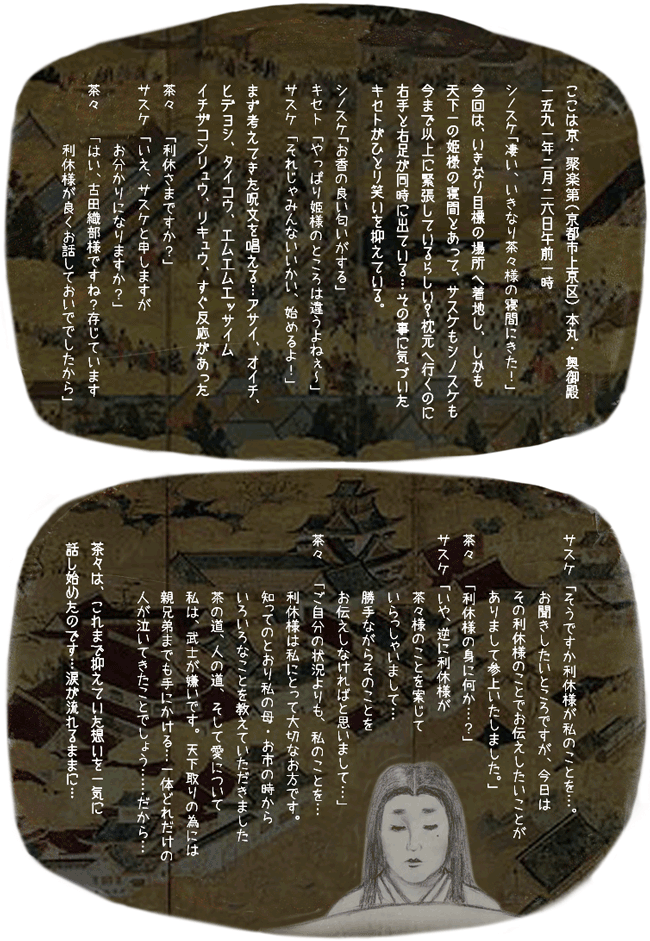 ここは京・聚楽第(京都市上京区)本丸・奥御殿
一五九一年二月二六日午前一時
シノスケ「凄い、いきなり茶々様の寝間にきた!」
今回は、いきなり目標の場所へ着地し、しかも
天下一の姫様の寝間とあって、サスケもシノスケも
今まで以上に緊張しているらしい?枕元へ行くのに
右手と右足が同時に出ている…その事に気づいた
キセトがひとり笑いを抑えている。
シノスケ「お香の良い匂いがする」
キセト「やっぱり姫様のところは違うよねぇ~」
サスケ「それじゃみんないいかい、始めるよ!」
まず考えてきた呪文を唱える…アサイ、オイチ、
ヒデヨシ、タイコウ、エムエムエッサイム
イチザコンリュウ、リキュウ、すぐ反応があった
茶々 「利休さまですか?」
サスケ「いえ、サスケと申しますが
お分かりになりますか?」
茶々 「はい、古田織部様ですね?存じています
利休様が良くお話しておいででしたから」
サスケ「そうですか利休様が私のことを…。
お聞きしたいところですが、今日は
その利休様のことでお伝えしたいことが
ありまして参上いたしました。」
茶々 「利休様の身に何か…?」
サスケ「いや、逆に利休様が
茶々様のことを案じて
いらっしゃいまして…
勝手ながらそのことを
お伝えしなければと思いまして…」
茶々 「ご自分の状況よりも、私のことを…
利休様は私にとって大切なお方です。
知ってのとおり私の母・お市の時から
いろいろなことを教えていただきました
茶の道、人の道、そして愛について
私は、武士が嫌いです。天下取りの為には
親兄弟までも手にかける…一体どれだけの
人が泣いてきたことでしょう……だから…
茶々は、これまで抑えていた想いを一気に
話し始めたのです…涙が流れるままに…